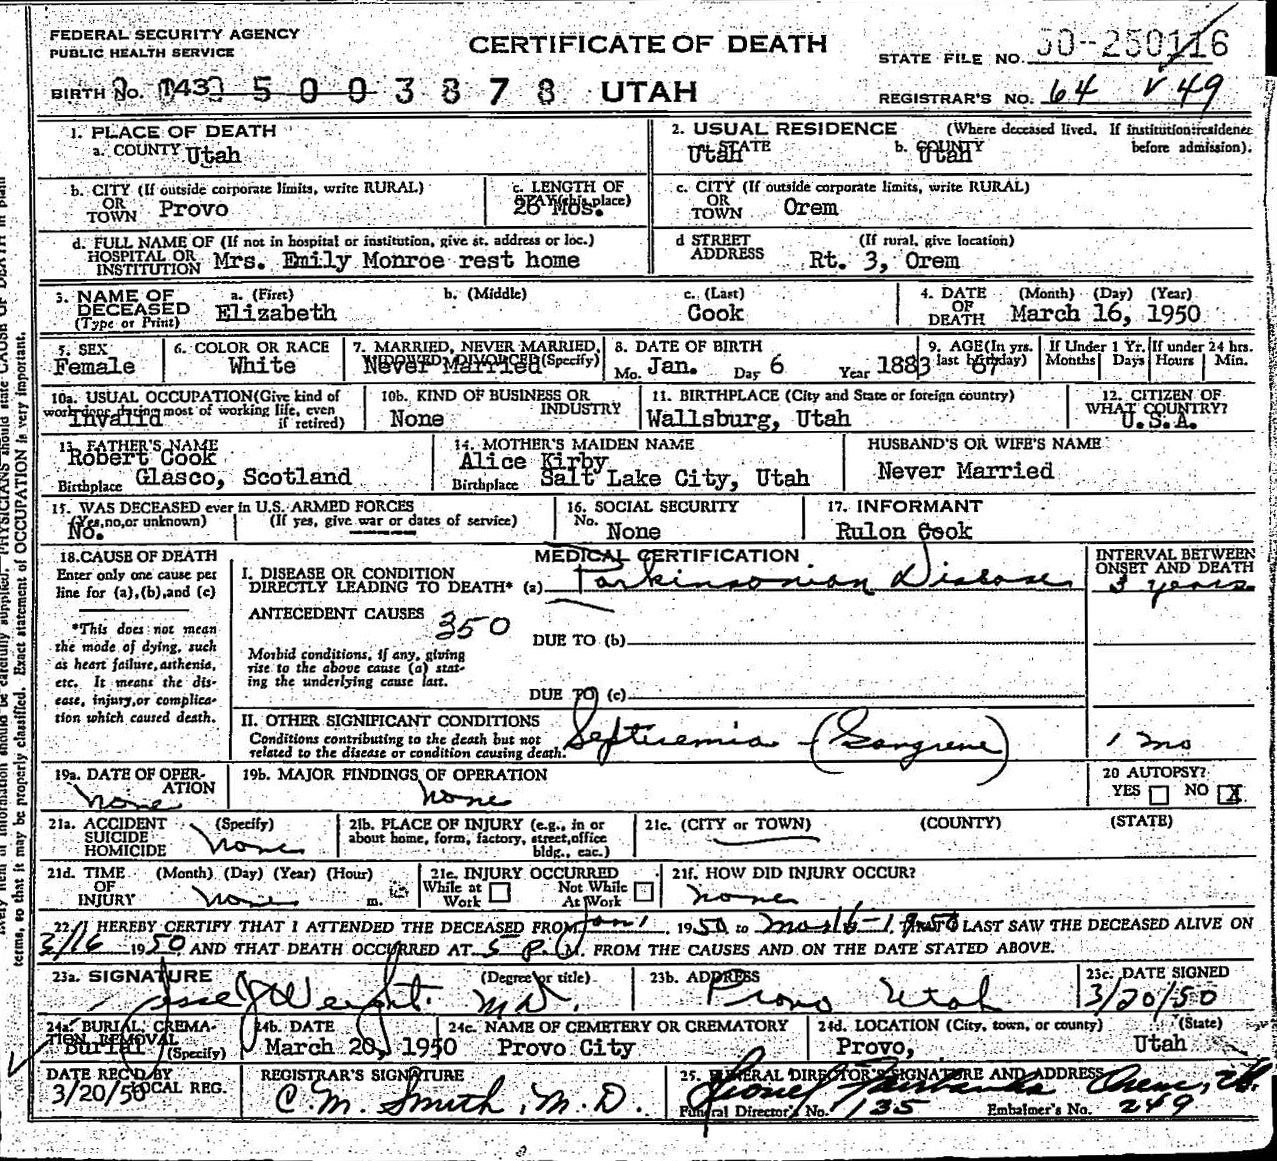 FEDERAL SECURITY AGENCY
PUBLIC HEALTH SERVICE
CERTIFICATE OF DEATH
STATE FILE NO. 50-250116
BIRTH No. 143 5003878 UTAH
REGISTRAR'S NO. 64 V 49
1. PLACE OF DEATH
a. COUNTY Utah
2. USUAL RESIDENCE (Where deceased lived. If institution: residence before admission).
STATE Utah b. COUNTY Utah
b. CITY (If outside corporate limits, write RURAL)
OR TOWN Provo
c. LENGTH OF STAY (this place)
26 Mos.
c. CITY (If outside corporate limits, write RURAL)
OR TOWN Orem
d. FULL NAME OF (If not in hospital or institution, give st. address or loc.)
HOSPITAL OR INSTITUTION Mrs. Emily Monroe rest home
d STREET ADDRESS (If rural, give location)
Rt. 3, Orem
3. NAME OF DECEASED (Type or Print)
a. (First) b. (Middle) c. (Last)
Elizabeth Cook
4. DATE OF DEATH (Month) (Day) (Year)
March 16, 1950
5. SEX
Female
6. COLOR OR RACE
White
7. MARRIED, NEVER MARRIED, WIDOWED, DIVORCED (Specify)
Never Married
8. DATE OF BIRTH
Mo. Jan. Day 6 Year 1883
9. AGE (In yrs. last birthday)
67
If Under 1 Yr. Months Days
If under 24 hrs. Hours Min.
10a. USUAL OCCUPATION (Give kind of work done during most of working life, even if retired)
Invalid
10b. KIND OF BUSINESS OR INDUSTRY
None
11. BIRTHPLACE (City and State or foreign country)
Wallsburg, Utah
12. CITIZEN OF WHAT COUNTRY?
U.S.A.
13. FATHER'S NAME
Robert Cook
Birthplace Glasco, Scotland
14. MOTHER'S MAIDEN NAME
Alice Kirby
Birthplace Salt Lake City, Utah
HUSBAND'S OR WIFE'S NAME
Never Married
15. WAS DECEASED ever in U.S. ARMED FORCES
(Yes, no, or unknown) (If yes, give war or dates of service)
No.
16. SOCIAL SECURITY
No. None
17. INFORMANT
Rulon Cook
18. CAUSE OF DEATH
Enter only one cause per line for (a), (b), and (c)
*This does not mean the mode of dying, such as heart failure, asthenia, etc. It means the disease, injury, or complication which caused death.
MEDICAL CERTIFICATION
I. DISEASE OR CONDITION
DIRECTLY LEADING TO DEATH* (a) Parkinsonian Disease
INTERVAL BETWEEN ONSET AND DEATH
3 years
ANTECEDENT CAUSES 350
DUE TO (b)
Morbid conditions, if any, giving rise to the above cause (a) stating the underlying cause last.
DUE TO (c)
II. OTHER SIGNIFICANT CONDITIONS
Conditions contributing to the death but not related to the disease or condition causing death.
Septicemia - (Gangrene) 1 mo
19a. DATE OF OPERATION
none
19b. MAJOR FINDINGS OF OPERATION
none
20 AUTOPSY?
YES NO X
21a. ACCIDENT SUICIDE HOMICIDE (Specify)
none
21b. PLACE OF INJURY (e.g., in or about home, form, factory, street, office bldg., eac.)
21c. (CITY or TOWN) (COUNTY) (STATE)
21d. TIME OF INJURY (Month) (Day) (Year) (Hour)
none m.
21e. INJURY OCCURRED
While at Work Not While At Work
21f. HOW DID INJURY OCCUR?
none
22. I HEREBY CERTIFY THAT I ATTENDED THE DECEASED FROM Jan 1, 1950 to Mar 16 - 1950 LAST SAW THE DECEASED ALIVE ON
3/16 1950 AND THAT DEATH OCCURRED AT 5 p. M. FROM THE CAUSES AND ON THE DATE STATED ABOVE.
23a. SIGNATURE (Degree or title)
Jesse J Weight. MD.
23b. ADDRESS
Provo Utah
23c. DATE SIGNED
3/20/50
24a. BURIAL, CREMATION, REMOVAL (Specify)
Burial
24b. DATE
March 20, 1950
24c. NAME OF CEMETERY OR CREMATORY
Provo City
24d. LOCATION (City, town, or county) (State)
Provo, Utah
DATE REC'D BY LOCAL REG.
3/20/50
REGISTRAR'S SIGNATURE
C. M. Smith, M. D.
25. FUNERAL DIRECTOR'S SIGNATURE AND ADDRESS
Fairbanks Orem, Ut.
Funeral Director's No. 135 Embalmer's No. 249
terms, so that it may be properly classified. Exact statement of OCCUPATION is very important.